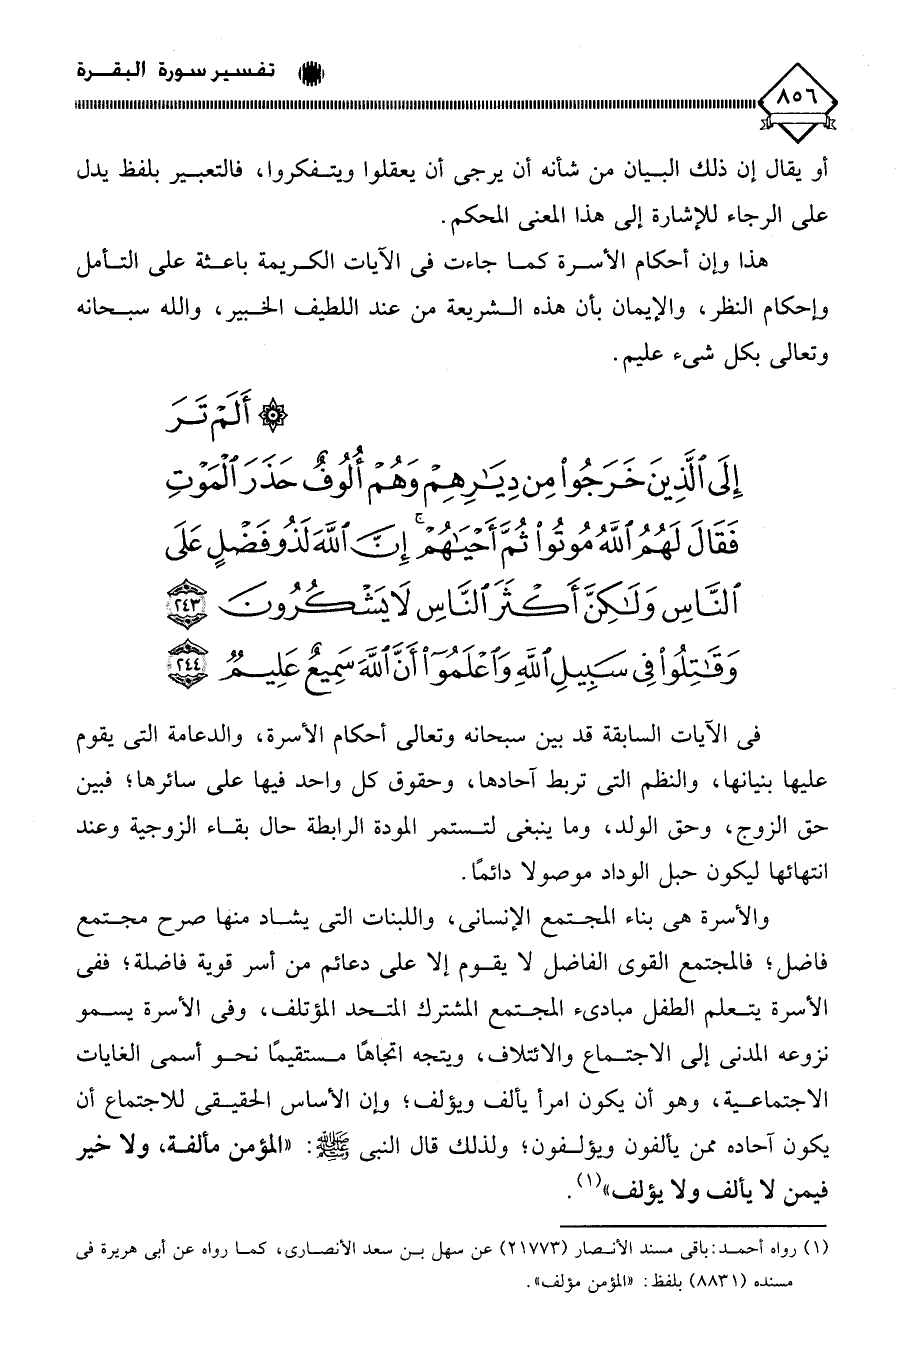 تفسير سورة البقرة
٨٥٦
أو يقال إن ذلك البيان من شأنه أن يرجى أن يعقلوا ويتفكروا، فالتعبير بلفظ يدل
على الرجاء للإشارة إلى هذا المعنى المحكم.
هذا وإن أحكام الأسرة كما جاءت فى الآيات الكريمة باعثة على التأمل
وإحكام النظر، والإيمان بأن هذه الشريعة من عند اللطيف الخبير، والله سبحانه
وتعالى بكل شىء عليم.
۞ أَلَمْ تَرَ
إِلَى ٱلَّذِينَ خَرَجُوا۟ مِن دِيَـٰرِهِمْ وَهُمْ أُلُوفٌ حَذَرَ ٱلْمَوْتِ
فَقَالَ لَهُمُ ٱللَّهُ مُوتُوا۟ ثُمَّ أَحْيَـٰهُمْ ۚ إِنَّ ٱللَّهَ لَذُو فَضْلٍ عَلَى
ٱلنَّاسِ وَلَـٰكِنَّ أَكْثَرَ ٱلنَّاسِ لَا يَشْكُرُونَ ٢٤٣
وَقَـٰتِلُوا۟ فِى سَبِيلِ ٱللَّهِ وَٱعْلَمُوٓا۟ أَنَّ ٱللَّهَ سَمِيعٌ عَلِيمٌ ٢٤٤
فى الآيات السابقة قد بين سبحانه وتعالى أحكام الأسرة، والدعامة التى يقوم
عليها بنيانها، والنظم التى تربط آحادها، وحقوق كل واحد فيها على سائرها؛ فبين
حق الزوج، وحق الولد، وما ينبغى لتستمر المودة الرابطة حال بقاء الزوجية وعند
انتهائها ليكون حبل الوداد موصولا دائمًا.
والأسرة هى بناء المجتمع الإنسانى، واللبنات التى يشاد منها صرح مجتمع
فاضل؛ فالمجتمع القوى الفاضل لا يقوم إلا على دعائم من أسر قوية فاضلة؛ ففى
الأسرة يتعلم الطفل مبادىء المجتمع المشترك المتحد المؤتلف، وفى الأسرة يسمو
نزوعه المدنى إلى الاجتماع والائتلاف، ويتجه اتجاهًا مستقيمًا نحو أسمى الغايات
الاجتماعية، وهو أن يكون امرأ يألف ويؤلف؛ وإن الأساس الحقيقى للاجتماع أن
يكون آحاده ممن يألفون ويؤلفون؛ ولذلك قال النبى ﷺ: «المؤمن مألفة، ولا خير
فيمن لا يألف ولا يؤلف»(١).
(١) رواه أحمد: باقى مسند الأنصار (٢١٧٧٣) عن سهل بن سعد الأنصارى، كما رواه عن أبى هريرة فى
مسنده (٨٨٣١) بلفظ: «المؤمن مؤلف».